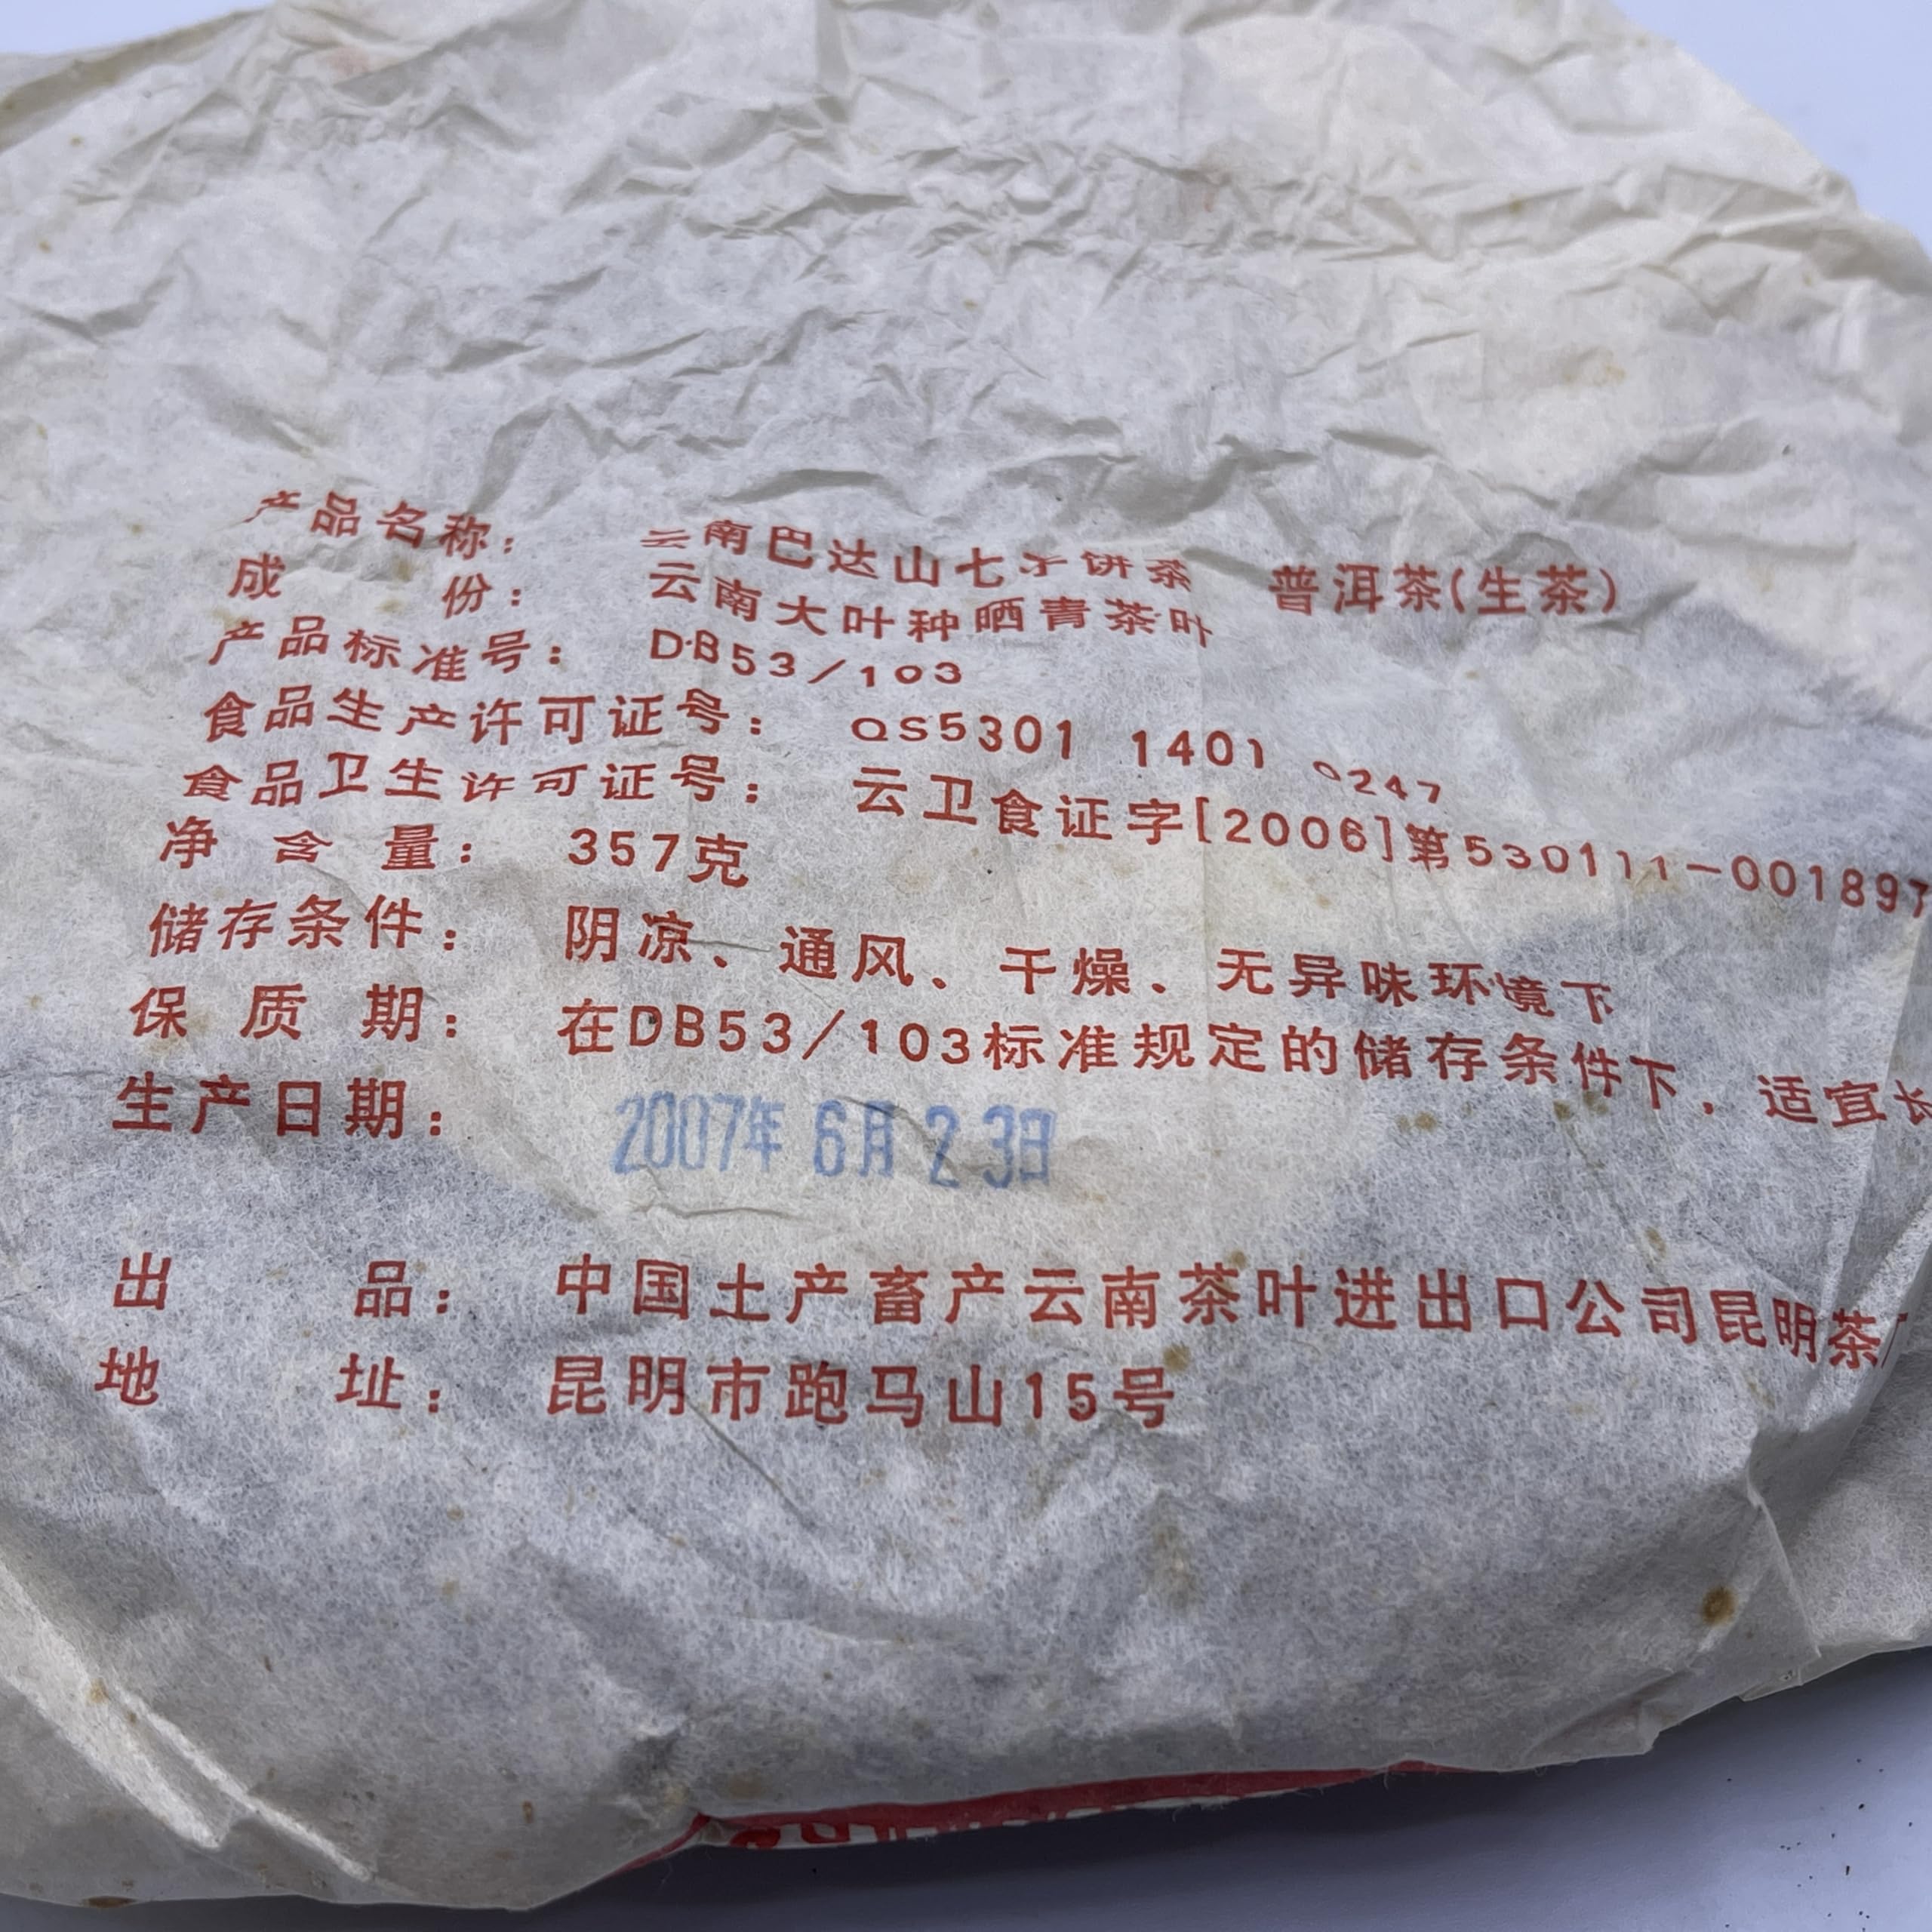 产品名称： 云南巴达山七子饼茶 普洱茶(生茶)
成 份： 云南大叶种晒青茶叶
产品标准号： DB53/103
食品生产许可证号： QS5301 1401 0247
食品卫生许可证号： 云卫食证字[2006]第530111-001897
净 含 量： 357克
储存条件： 阴凉、通风、干燥、无异味环境下
保 质 期： 在DB53/103标准规定的储存条件下，适宜长
生产日期： 2007年6月23日
出 品： 中国土产畜产云南茶叶进出口公司昆明茶厂
地 址： 昆明市跑马山15号